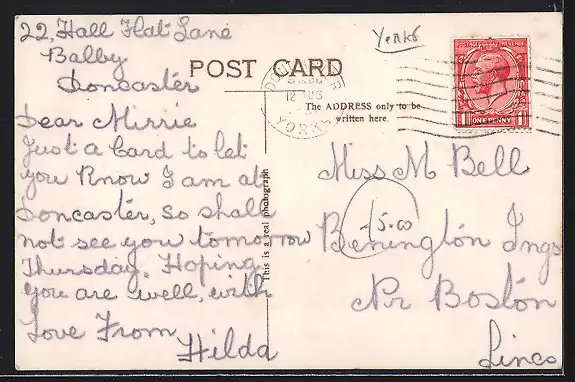 22, Hall Flat Lane
Balby
Doncaster
Yorks
POST CARD
DONCASTER
12 AUG
YORKS
POSTAGE REVENUE
1 ONE PENNY 1
The ADDRESS only to be
written here.
Dear Mirrie
Just a Card to let
you Know I am at
Doncaster, so shall
not see you tomorrow
Thursday. Hoping
you are well, with
Love From
Hilda
This is a real photograph
Miss M Bell
15.00
Benington Ings
Nr Boston
Lincs